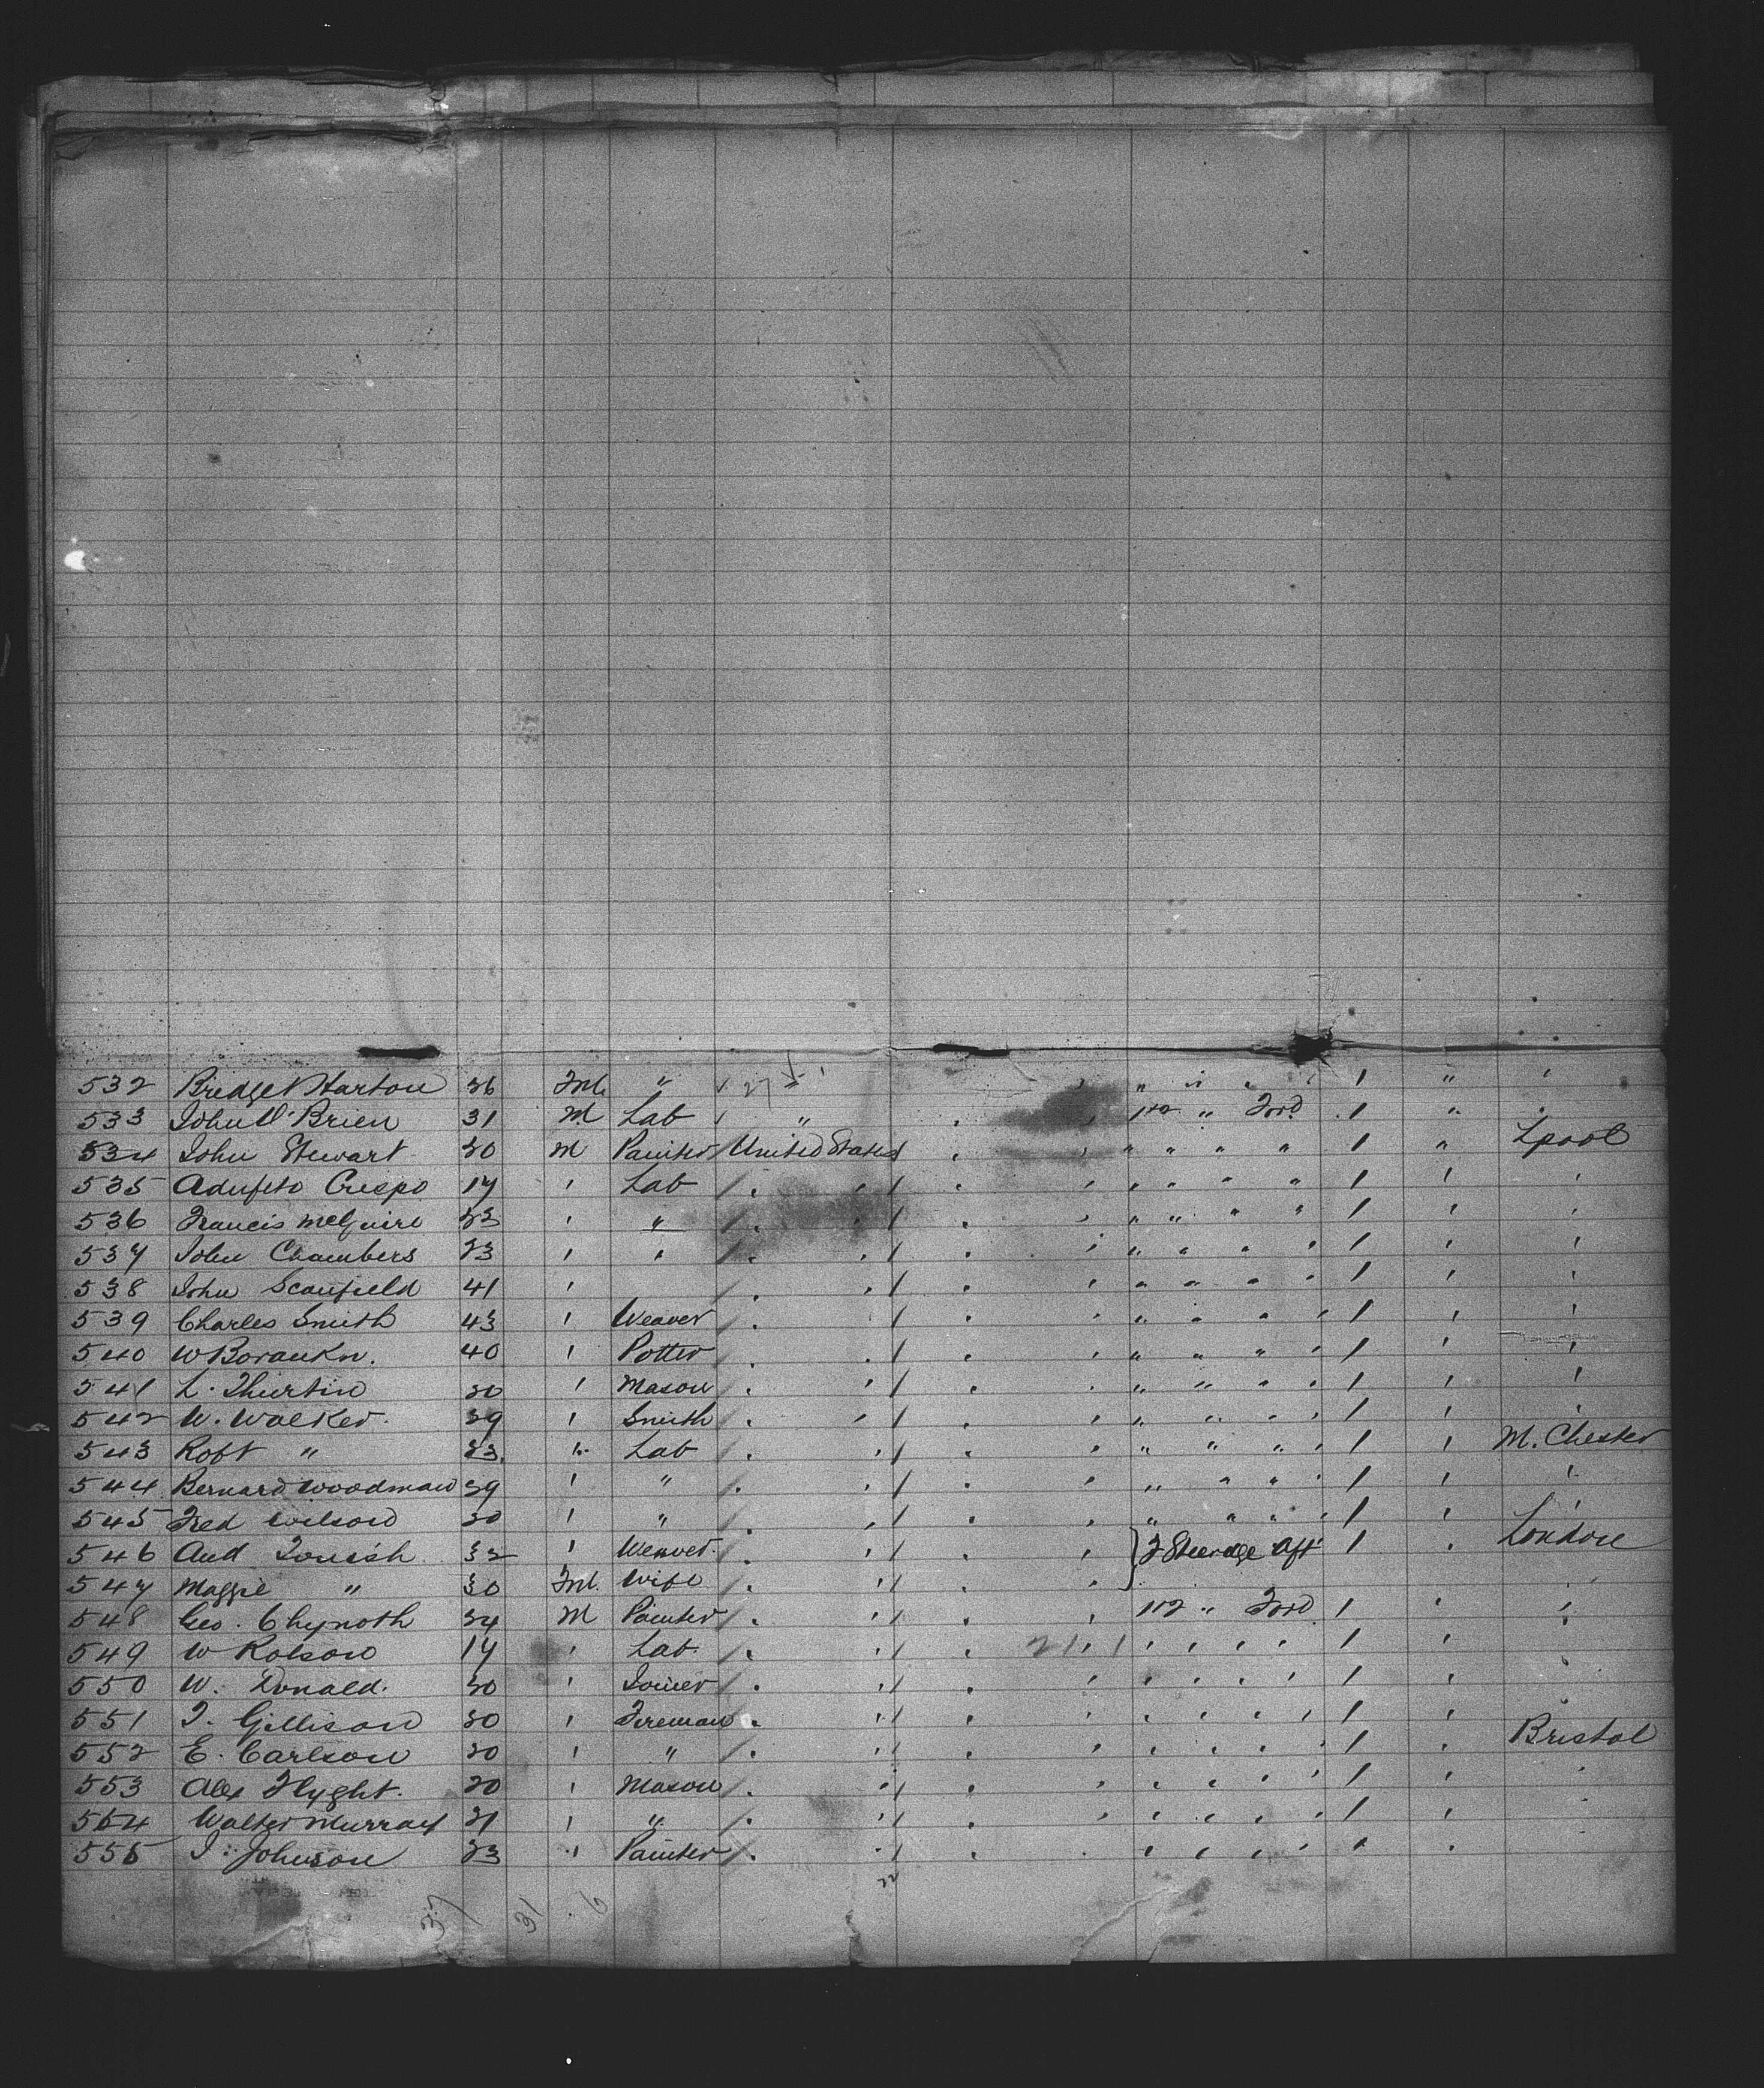 532 Bridget Harton 36 Fm " "
533 John O'Brien 31 M Lab " 1 & 2 " Ford 1 "
534 John Stewart 30 M Painter United States " " " " 1 " Lpool
535 Crespo 17 ' Lab " " " " 1 ' '
536 Francis McGuire 33 ' " " " " " 1 ' '
537 John Chambers 23 ' ' " " " " 1 ' '
538 John Scanfield 41 ' " " " " 1 ' '
539 Charles Smith 43 ' Weaver " " " ' 1 ' '
540 W 40 ' Potter " " " ' 1 ' '
541 L. Thurtin 30 ' Mason " " " ' 1 ' '
542 W. Walker 39 ' Smith " " " ' 1 ' '
543 Robt " 33 " Lab " " " ' 1 ' M. Chester
544 Bernard Woodman 39 ' " " " " ' 1 ' '
545 Fred Wilson 30 ' " " " " ' 1 ' '
546 And 32 ' Weaver 2 Steerage Aft 1 ' London
547 Maggie " 30 Fm Wife '
548 Geo. Chynoth 34 M Painter 1 & 2 " Ford 1 ' '
549 W Robson 17 ' Lab. 21 1 ' ' ' ' 1 ' '
550 W. Donald. 30 ' Joiner ' ' ' ' 1 ' '
551 J. Gillison 30 ' Fireman ' ' ' ' 1 ' '
552 E. Carlson 30 ' " ' ' ' ' 1 ' Bristol
553 Alex Flyght. 20 ' Mason ' ' ' ' 1 ' '
554 Walter Murray 31 ' " ' ' ' ' 1 ' '
555 J. Johnson 33 ' Painter ' ' ' ' 1 '
22
37 31 6